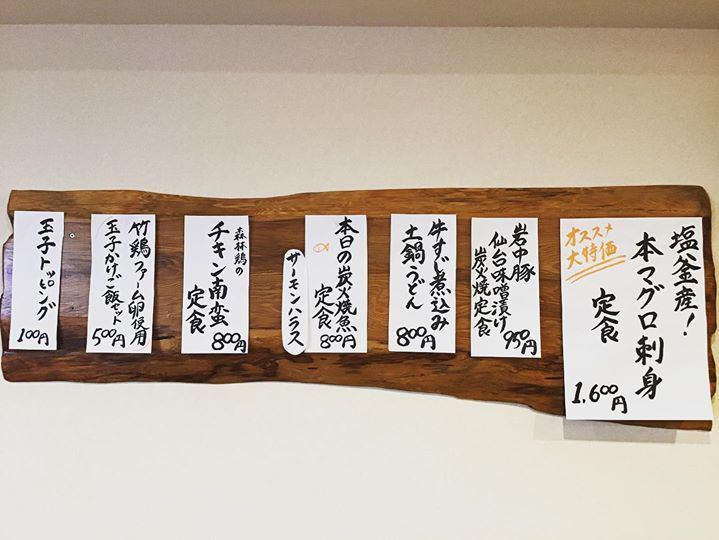 塩釜産!
本マグロ刺身
定食
1,600円
オススメ
大特価
岩中豚
仙台味噌漬け
炭火焼定食
950円
牛すじ煮込み
土鍋うどん
800円
本日の炭火焼魚
定食
800円
サーモンハラス
森林鶏の
チキン南蛮
定食
800円
竹鶏ファーム卵使用
玉子かけご飯セット
500円
玉子トッピング
100円